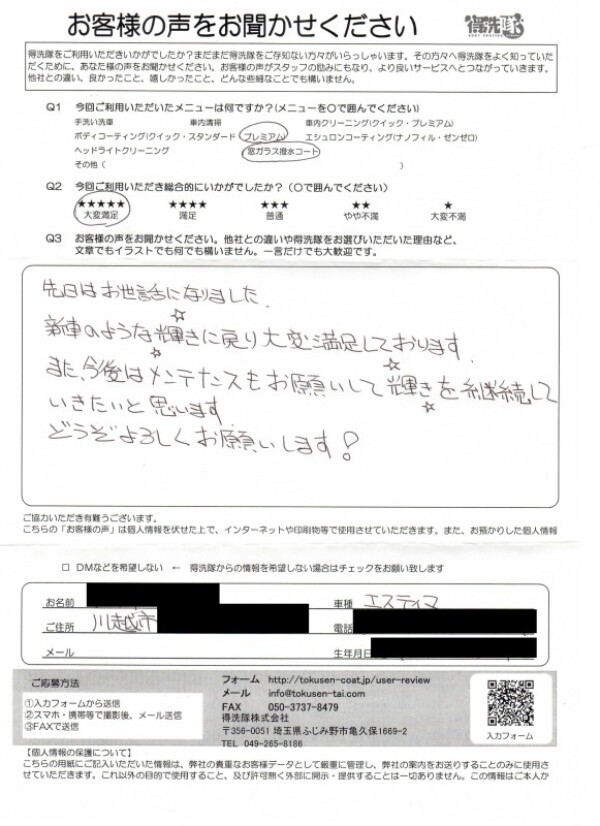 お客様の声をお聞かせください
得洗隊
得洗隊をご利用いただきいかがでしたか?まだまだ得洗隊をご存知ない方々がいらっしゃいます。その方々へ得洗隊をよく知っていた
だくために、あなた様の声をお聞かせください。お客様の声がスタッフの励みにもなり、より良いサービスへとつながっていきます。
他社との違い、良かったこと、嬉しかったこと、どんな些細なことでも構いません。
Q1 今回ご利用いただいたメニューは何ですか?(メニューを〇で囲んでください)
手洗い洗車 車内清掃 車内クリーニング(クイック・プレミアム)
ボディコーティング(クイック・スタンダード プレミアム) エシュロンコーティング(ナノフィル・ゼンゼロ)
ヘッドライトクリーニング 窓ガラス撥水コート
その他( )
Q2 今回ご利用いただき総合的にいかがでしたか?(〇で囲んでください)
★★★★★ ★★★★ ★★★ ★★ ★
大変満足 満足 普通 やや不満 大変不満
Q3 お客様の声をお聞かせください。他社との違いや得洗隊をお選びいただいた理由など、
文章でもイラストでも何でも構いません。一言だけでも大歓迎です。
先日はお世話になりました.
新車のような輝きに戻り大変満足しております.
また、今後はメンテナンスもお願いして輝きを継続して
いきたいと思います
どうぞよろしくお願いします!
ご協力いただき有難うございます。
こちらの「お客様の声」は個人情報を伏せた上で、インターネットや印刷物等で使用させていただきます。また、お預かりした個人情報
□ DMなどを希望しない ← 得洗隊からの情報を希望しない場合はチェックをお願い致します
お名前 車種 エスティマ
ご住所 川越市 電話
メール 生年月日
ご応募方法
①入力フォームから送信
②スマホ・携帯等で撮影後、メール送信
③FAXで送信
フォーム http://tokusen-coat.jp/user-review
メール info@tokusen-tai.com
FAX 050-3737-8479
得洗隊株式会社
〒356-0051 埼玉県ふじみ野市亀久保1669-2
TEL 049-265-8186
入力フォーム
【個人情報の保護について】
こちらの用紙にご記入いただいた情報は、弊社の貴重なお客様データとして厳重に管理し、弊社の案内をお送りすることのみに使用さ
せていただきます。これ以外の目的で使用すること、及び許可無く外部に開示・提供することは一切ありません。この情報はご本人か